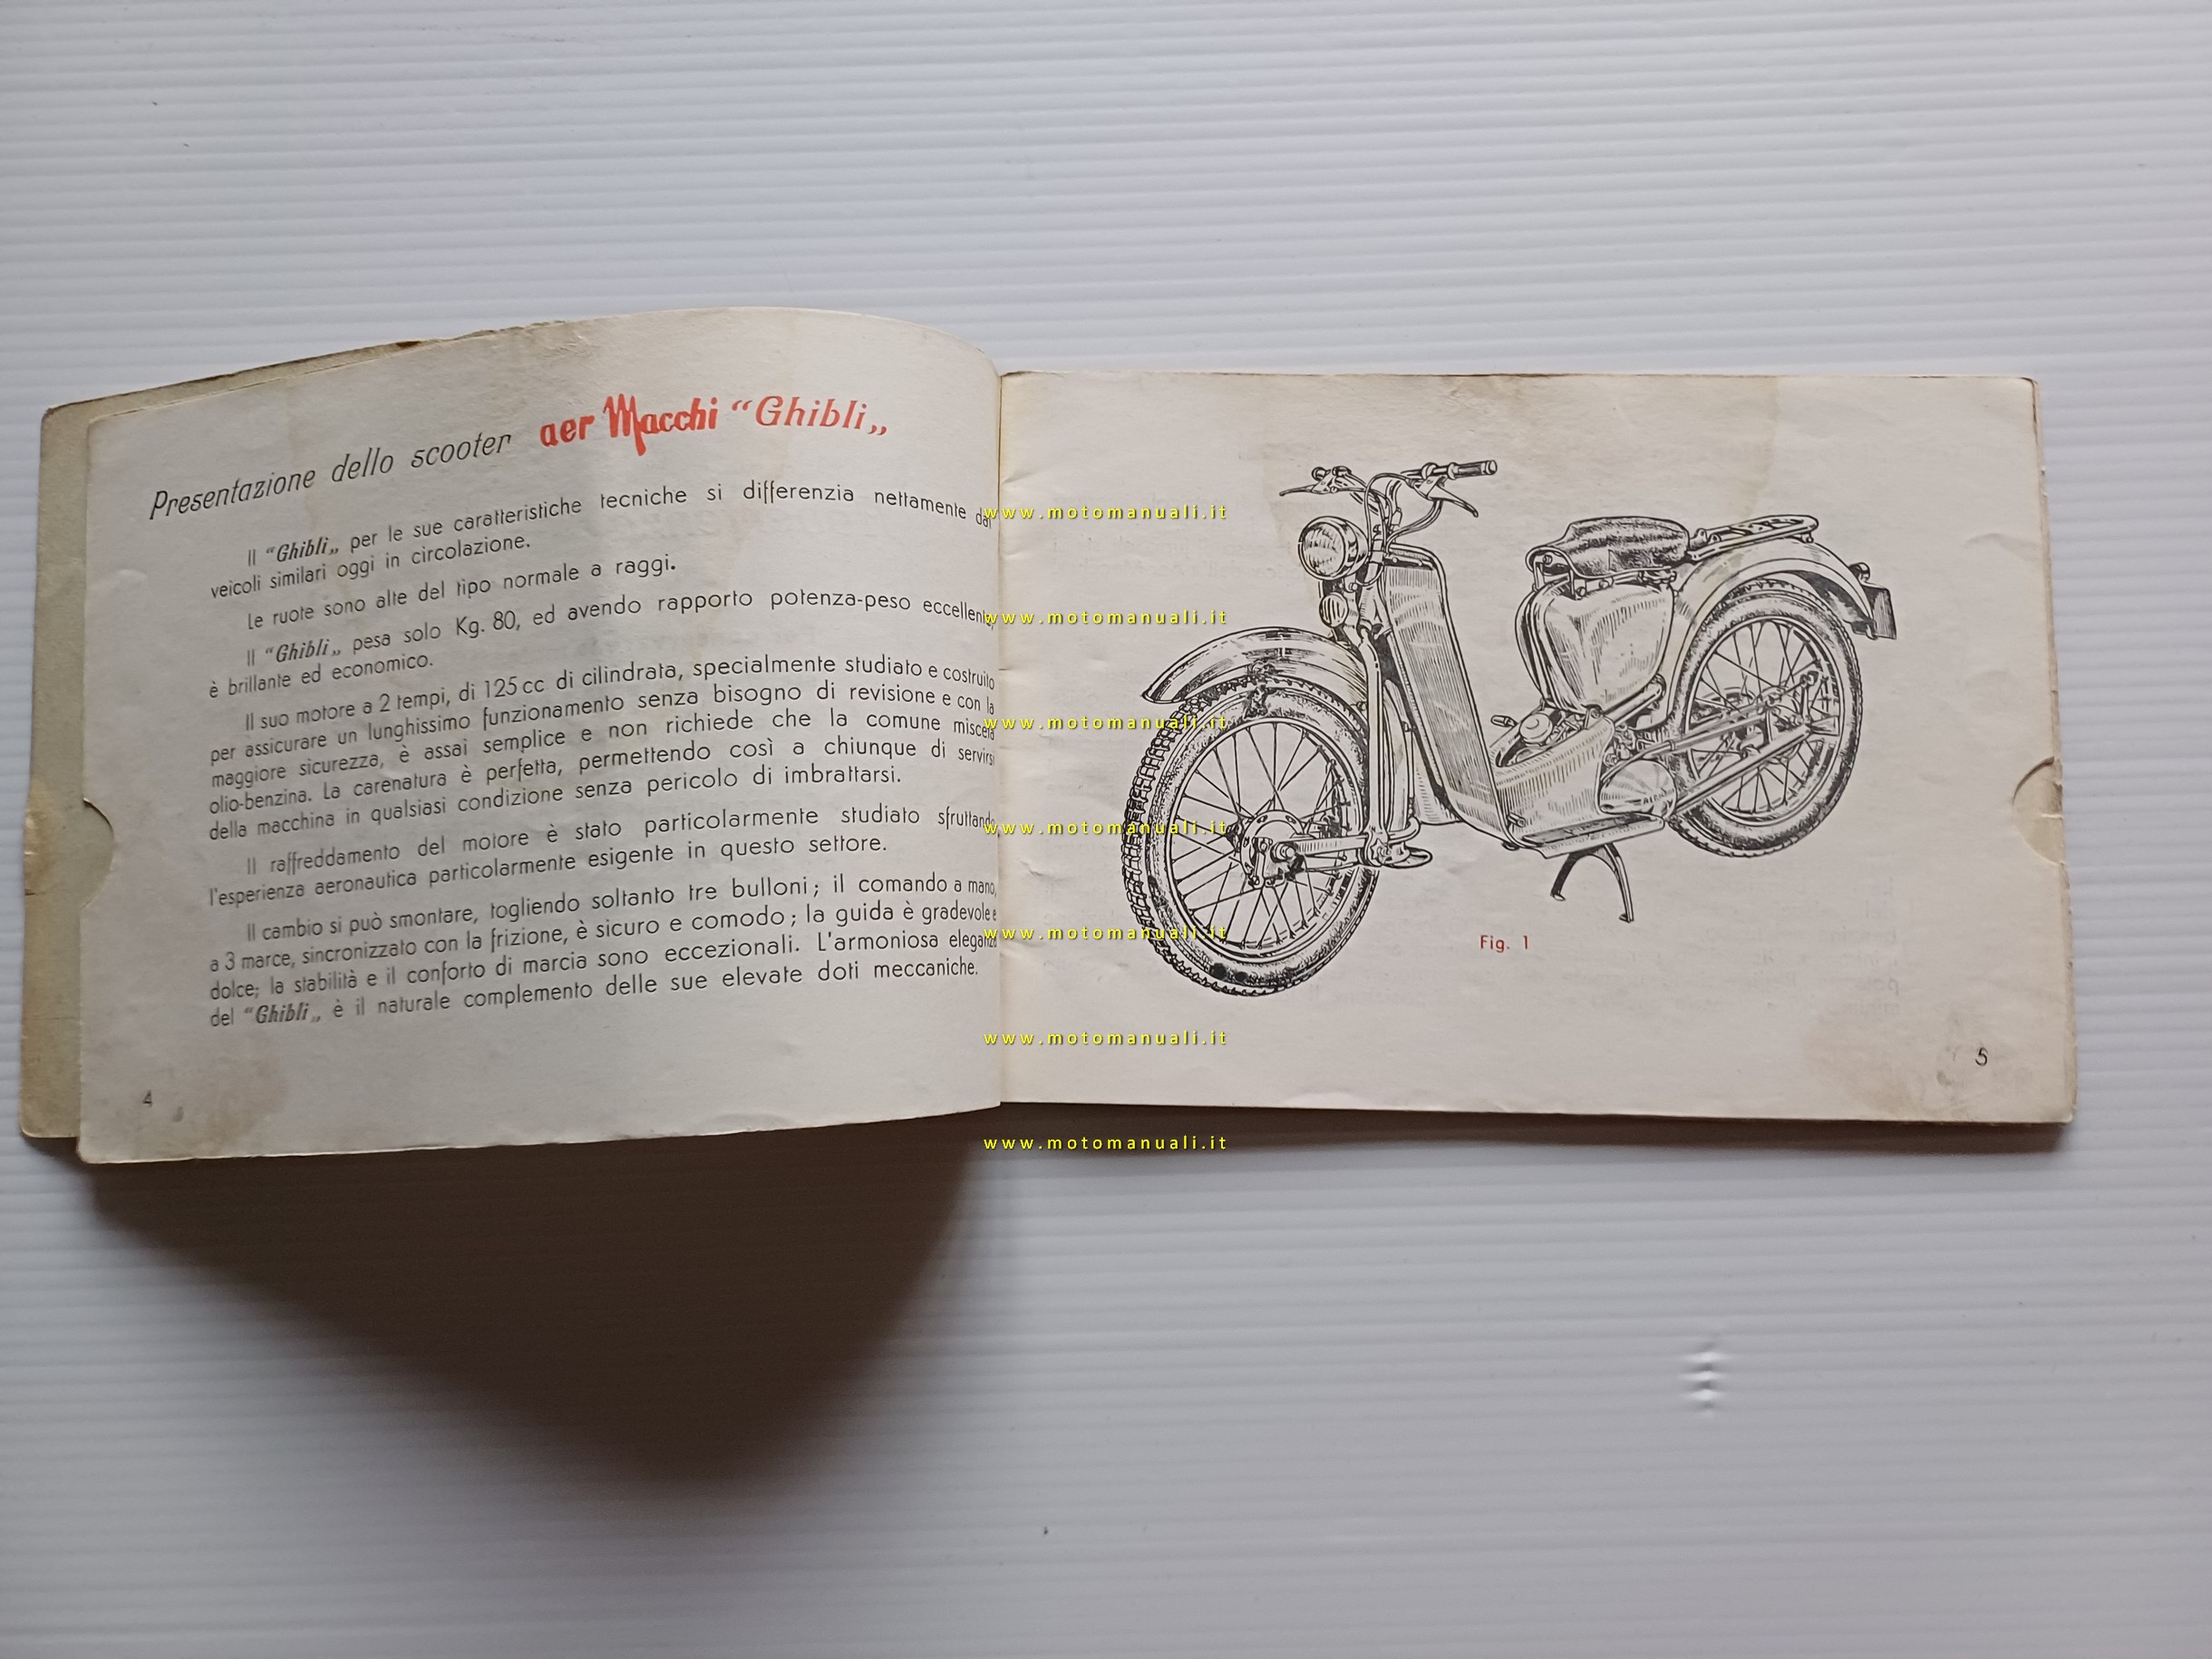 Presentazione dello scooter aer Macchi “Ghibli„
Il “Ghibli„ per le sue caratteristiche tecniche si differenzia nettamente dai
veicoli similari oggi in circolazione.
Le ruote sono alte del tipo normale a raggi.
Il “Ghibli„ pesa solo Kg. 80, ed avendo rapporto potenza-peso eccellente,
è brillante ed economico.
Il suo motore a 2 tempi, di 125 cc di cilindrata, specialmente studiato e costruito
per assicurare un lunghissimo funzionamento senza bisogno di revisione e con la
maggiore sicurezza, è assai semplice e non richiede che la comune miscela
olio-benzina. La carenatura è perfetta, permettendo così a chiunque di servirsi
della macchina in qualsiasi condizione senza pericolo di imbrattarsi.
Il raffreddamento del motore è stato particolarmente studiato sfruttando
l'esperienza aeronautica particolarmente esigente in questo settore.
Il cambio si può smontare, togliendo soltanto tre bulloni; il comando a mano,
a 3 marce, sincronizzato con la frizione, è sicuro e comodo; la guida è gradevole e
dolce; la stabilità e il conforto di marcia sono eccezionali. L'armoniosa eleganza
del “Ghibli„ è il naturale complemento delle sue elevate doti meccaniche.
4
Fig. 1
5
www.motomanuali.it
www.motomanuali.it
www.motomanuali.it
www.motomanuali.it
www.motomanuali.it
www.motomanuali.it
www.motomanuali.it